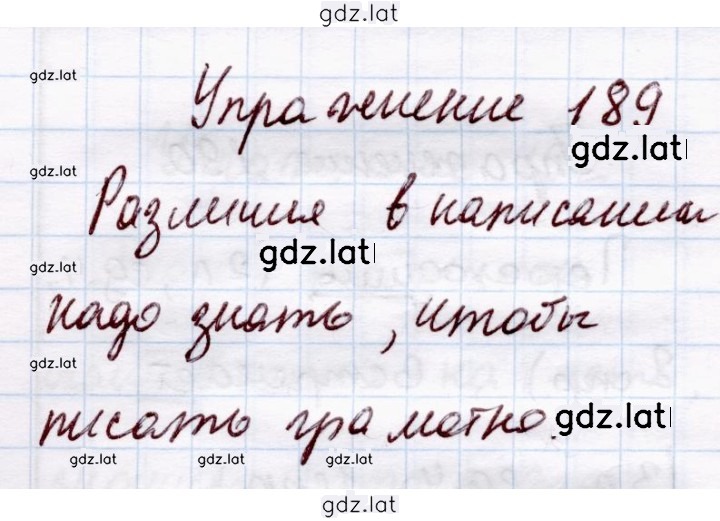 gdz.lat
gdz.lat
Упражнение 189
gdz.lat
gdz.lat
Различия в написании
gdz.lat
gdz.lat
надо знать, чтобы
gdz.lat
писать грамотно.
gdz.lat
gdz.lat gdz.lat gdz.lat
gdz.lat